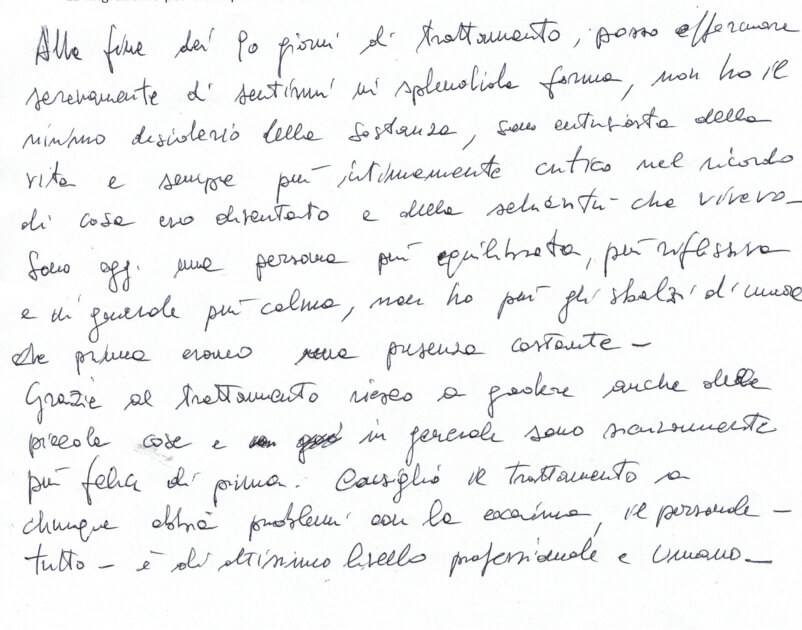 Alla fine dei 90 giorni di trattamento, posso affermare
serenamente di sentirmi in splendida forma, non ho il
minimo desiderio della sostanza, sono entusiasta della
vita e sempre più intimamente critico nel ricordo
di cosa ero diventato e della che vivevo_
Sono oggi una persona più equilibrata, più riflessiva
e in generale più calma, non ho più gli sbalzi di umore
che prima erano una presenza costante_
Grazie al trattamento riesco a godere anche delle
piccole cose e in generale sono sicuramente
più felice di prima. Consiglio il trattamento a
chiunque abbia problemi con la cocaina, il personale_
tutto_ è di altissimo livello professionale e umano_